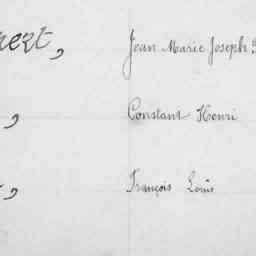 Jean Marie Joseph
Constant Henri
François Louis